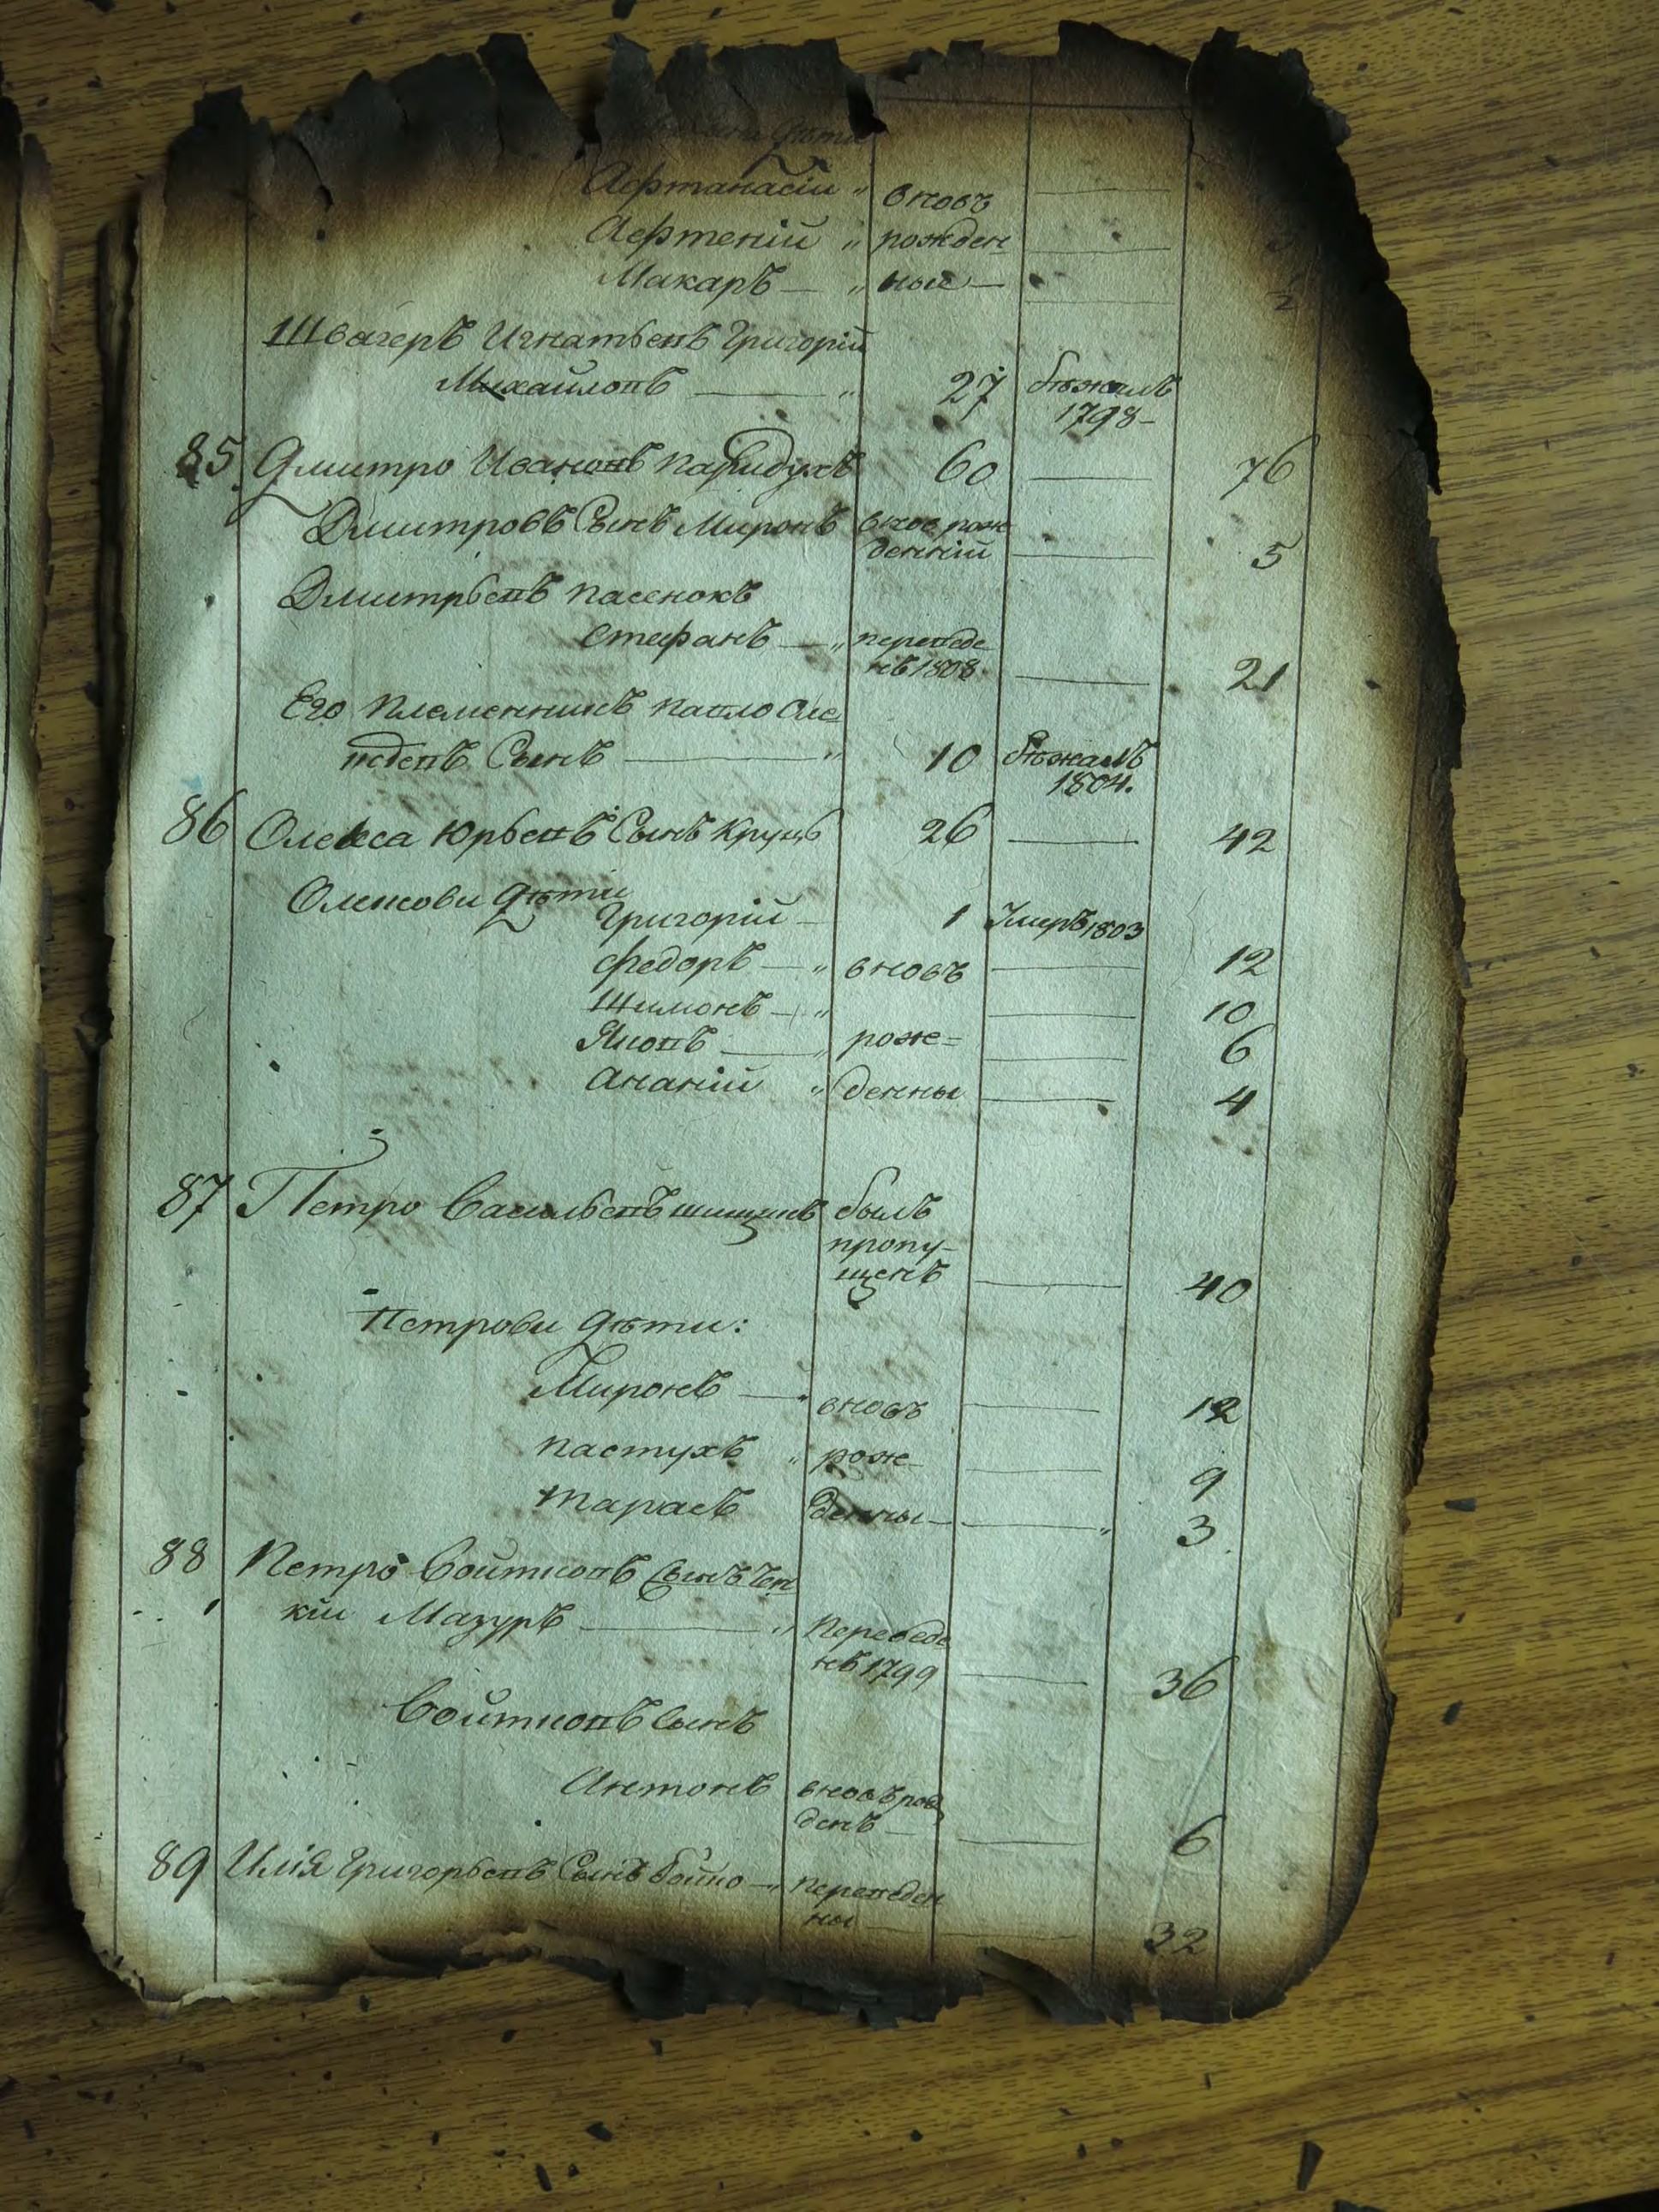 дѣти
Афтанасій " вновъ
Афтеній " рожден
Макаръ — " ные —
Швагеръ Игнатьевъ Григорій
Михайловъ — " 27 бѣжалъ
1798 -
85 Дмитро Ивановъ 60 — 76
Дмитровъ Сынъ Миронъ внов рож
денній — 5
Дмитрьевъ пасенокъ
Стефанъ — " переведе
нъ 1808. — 21
Его племенникъ Павло Оле
 Сынъ — " 10 бѣжалъ
1804.
86 Олекса Юрьевъ Сынъ Куцъ 26 — 42
Олексови дѣти
Григорій — 1 Умеръ 1803
Федоръ — " вновъ — 12
Шимонъ — " — 10
Яковъ — " рож= — 6
Ананій " денны — 4
87 Петро Васильевъ былъ
пропу-
щенъ — 40
Петрови дѣти:
Миронъ — " вновъ — 12
Пастухъ " рож — 9
Тарасъ денны — — " 3
88 Петро Войтковъ Сынъ
кій Мазуръ — " Переведе
нъ 1799 — 36
Войтковъ Сынъ
Антонъ вновъ рож
денъ — — 6
89 Илія Григорьевъ Сынъ Бойко — " переведен
ны — 32